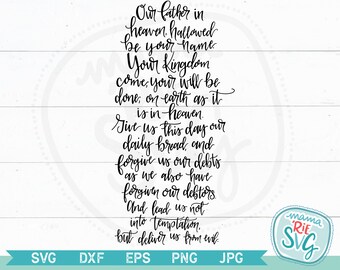 Our father in
heaven, hallowed
be your name.
Your Kingdom
come, your will be
done, on earth as it
is in heaven.
Give us this day our
daily bread, and
forgive us our debts
as we also have
forgiven our debtors.
And lead us not
into temptation,
but deliver us from evil.
mama
RIE
SVG
SVG DXF EPS PNG JPG